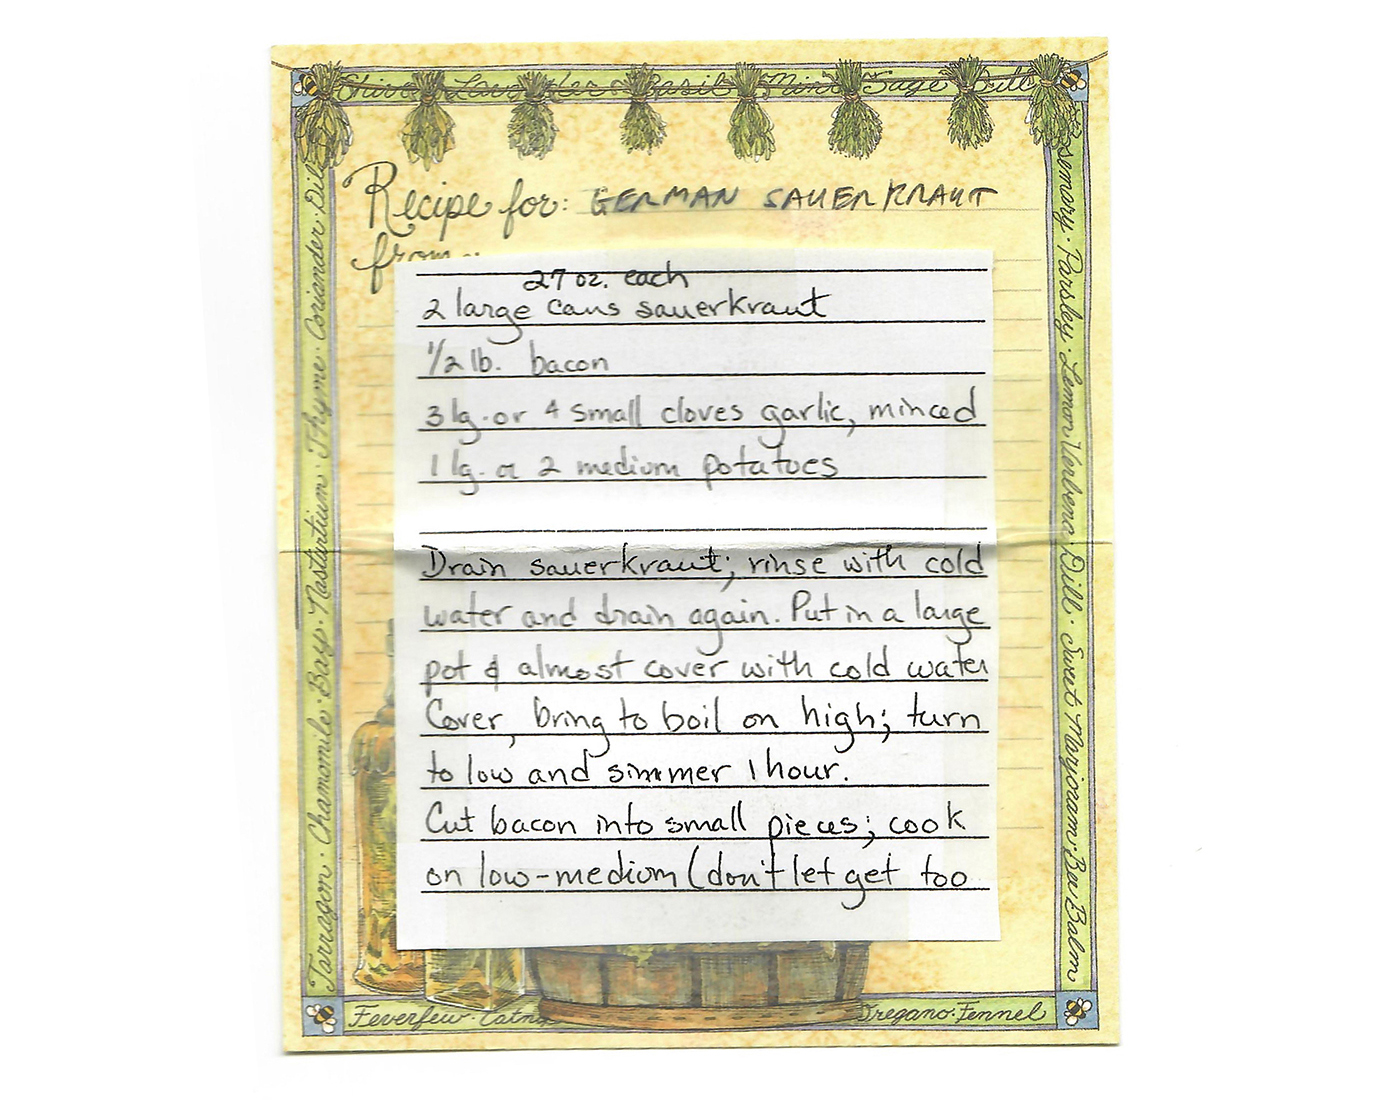 Chives · Lavender · Basil · Mint · Sage · Dill
Recipe for: GERMAN SAUERKRAUT
from
27 oz. each
2 large cans sauerkraut
1/2 lb. bacon
3 lg. or 4 small cloves garlic, minced
1 lg. or 2 medium potatoes
Drain sauerkraut; rinse with cold
water and drain again. Put in a large
pot & almost cover with cold water
Cover, bring to boil on high; turn
to low and simmer 1 hour.
Cut bacon into small pieces; cook
on low-medium (don't let get too
Tarragon · Chamomile · Bay · Nasturtium · Thyme · Coriander · Dill
Rosemary · Parsley · Lemon Verbena · Dill · Sweet Marjoram · Bee Balm
Feverfew · Catn
Oregano · Fennel